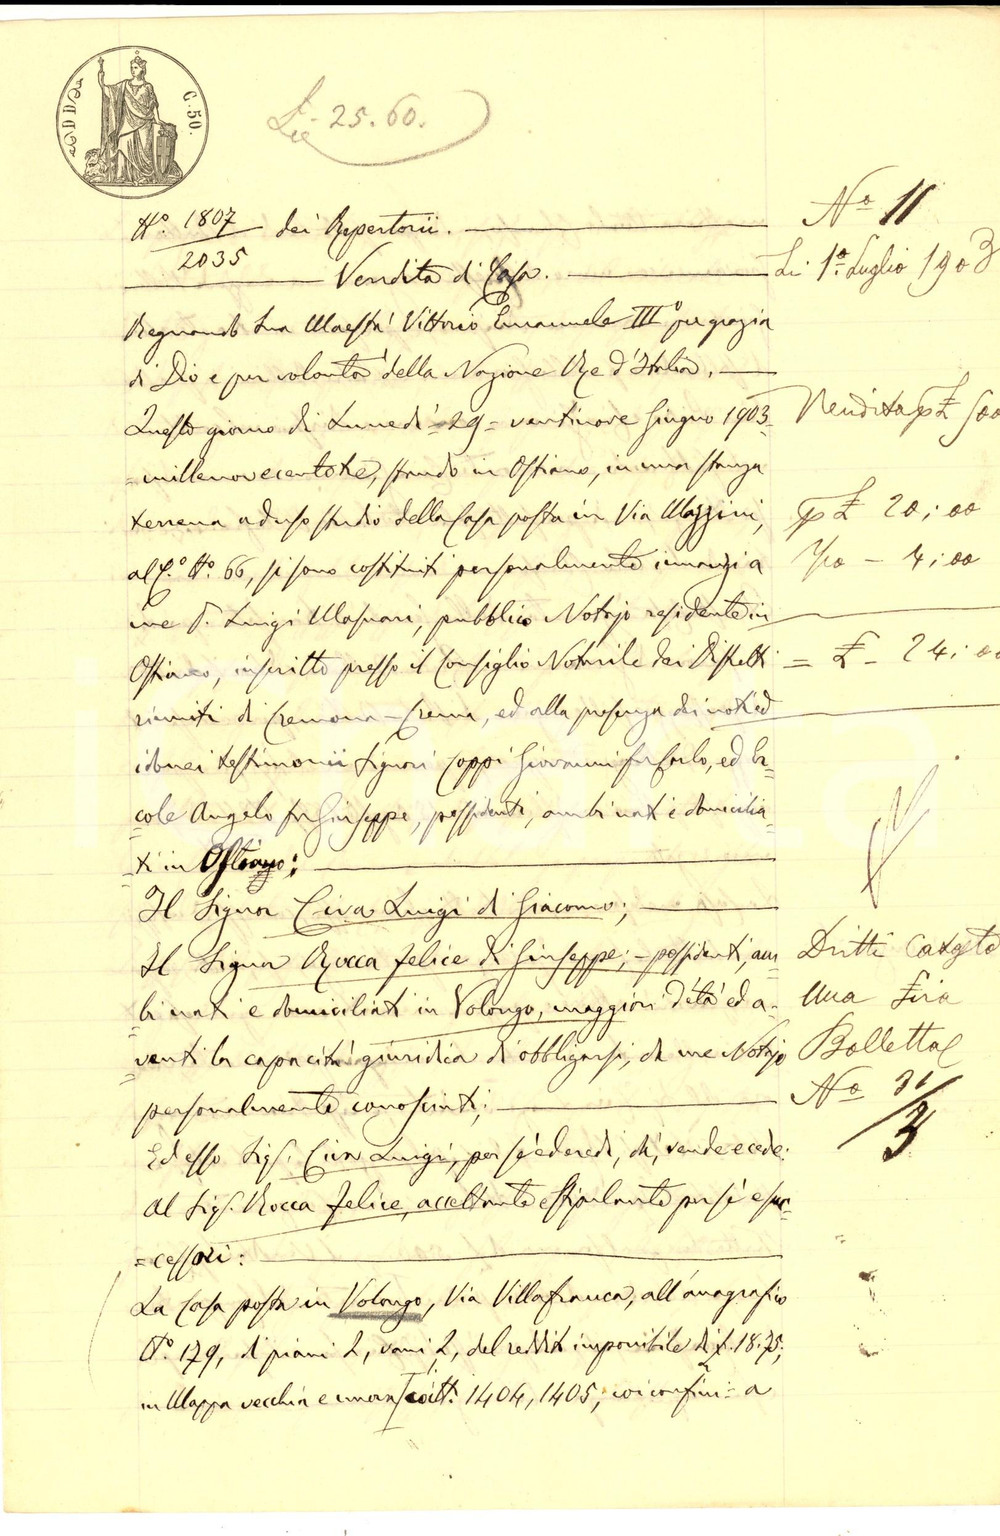 C. 50.
£ie 25. 60.
N.º 1807 dei Repertorii.
2035
Vendita di Casa.
Regnando Sua Maestà Vittorio Emanuele IIIº per grazia
di Dio e per volontà della Nazione Re d'Italia.
Questo giorno di Lunedì = 29 = ventinove Giugno 1903
= millenovecentotre, stando in Ostiano, in una stanza
terrena ad uso studio della Casa posta in Via Mazzini,
al C.º N.º 66, si sono costituiti personalmente innanzi a
me D. Luigi Masnari, pubblico Notajo residente in
Ostiano, inscritto presso il Consiglio Notarile dei Distretti
riuniti di Cremona-Crema, ed alla presenza dei noti ed
idonei testimonii Signori Coppi Giovanni fu Carlo, ed Er-
cole Angelo fu Giuseppe, possidenti, ambi nati e domicilia-
ti in Ostiano:
Il Signor Civa Luigi di Giacomo;
Il Signor Rocca Felice di Giuseppe; - possidenti, am
bi nati e domiciliati in Volongo, maggiori d'età ed a-
venti la capacità giuridica di obbligarsi, da me Notajo
personalmente conosciuti;
Ed esso Sig. Civa Luigi, per sé ed eredi, dà, vende e cede
al Sig. Rocca Felice, accettante e stipulante per sé e suc-
= cessori:
La Casa posta in Volongo, Via Villafranca, all'anagrafico
N.º 179, di piani 2, vani 2, del reddito imponibile di £. 18.75,
in Mappa vecchia e nuova coi N.i 1404, 1405, coi confini = a
Nº 11
Li 1º Luglio 1903
Vendita p £ 500
p £ 20,00
1/10 - 4,00
= £ - 24,00
Dritti Catasto
Una Lira
Bolletta
Nº 31/3